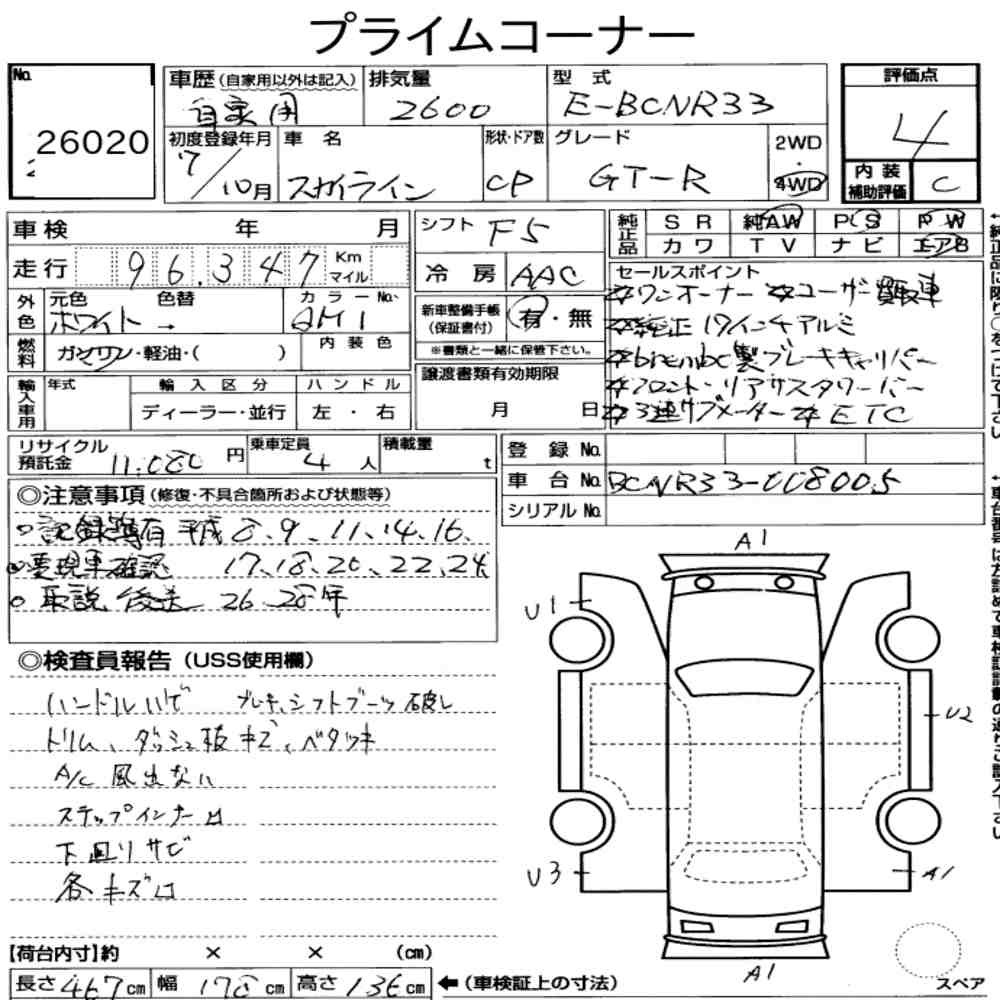 プライムコーナー
No.
26020
車歴(自家用以外は記入)
自家用
排気量
2600
型式
E-BCNR33
評価点
4
初度登録年月
7/10月
車名
スカイライン
形状・ドア数
CP
グレード
GT-R
2WD
・
4WD
内装
補助評価
C
車検 年 月
走行 96,347 Km
マイル
シフト F5
冷房 AAC
純正品
SR 純AW PS PW
カワ TV ナビ エアB
外色
元色 色替
ホワイト →
カラーNo.
QM1
燃料
ガソリン・軽油・( )
内装色
新車整備手帳
(保証書付)
有・無
※書類と一緒に保管下さい。
セールスポイント
☆ワンオーナー ☆ユーザー買取車
☆純正17インチアルミ
☆brembo製ブレーキキャリパー
☆フロント・リアサスタワーバー
☆3連サブメーター☆ETC
輸入車用
年式
輸入区分
ハンドル
ディーラー・並行
左・右
譲渡書類有効期限
月 日
リサイクル
預託金
11,080円
乗車定員
4人
積載量
t
登録No.
車台No. BCNR33-008005
シリアルNo.
◎注意事項(修復・不具合箇所および状態等)
○記録簿有 平成8、9、11、14、16、
○要現車確認 17、18、20、22、24
○取説後送 26、28年
◎検査員報告(USS使用欄)
ハンドルハゲ ブレーキ、シフトブーツ破れ
トリム、ダッシュ板キズ、ベタツキ
A/C風出ない
ステップインナー凹
下廻りサビ
各キズ凹
A1
U1
U2
U3
A1
A1
スペア
【荷台内寸】約 × × (cm)
長さ467cm 幅178cm 高さ136cm ←(車検証上の寸法)